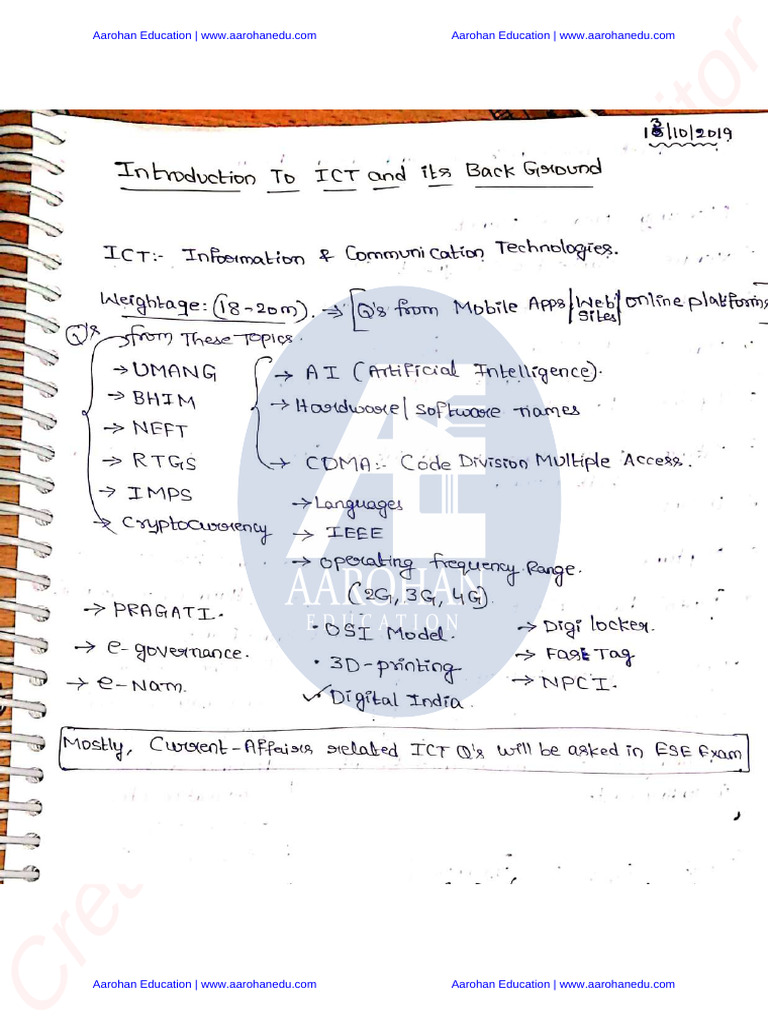 Aarohan Education | www.aarohanedu.com Aarohan Education | www.aarohanedu.com
13/10/2019
Introduction To ICT and its Back Ground
ICT:- Information & Communication Technologies.
Weightage: (18-20m). → [Q's from Mobile Apps/Web Sites/online platforms
Q's from These Topics.
→ UMANG
→ BHIM
→ NEFT
→ RTGS
→ IMPS
→ Cryptocurrency
→ AI (Artificial Intelligence).
→ Hardware/software names
→ CDMA:- Code Division Multiple Access.
→ Languages
→ IEEE
→ operating frequency Range.
(2G, 3G, 4G).
→ PRAGATI.
→ e-governance.
→ e-Nam.
• OSI Model.
• 3D-printing
✓ Digital India.
→ Digi locker.
→ FasETag
→ NPCI.
Mostly, Current-Affairs related ICT Q's will be asked in ESE Exam
AAROHAN
EDUCATION
Aarohan Education | www.aarohanedu.com Aarohan Education | www.aarohanedu.com